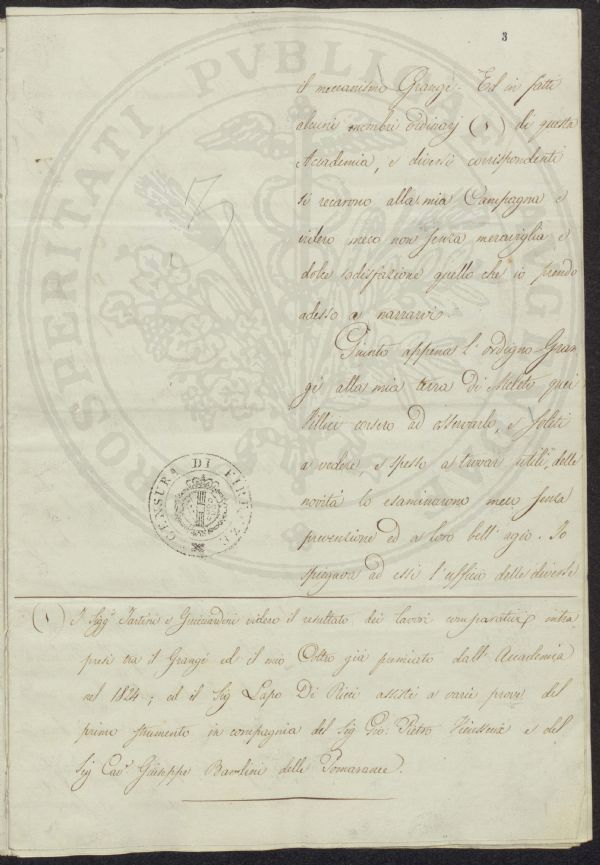 3
il meccanismo Grangé. Ed in fatti
alcuni membri ordinarj (1) di questa
Accademia, e diversi corrispondenti
si recarono alla mia Campagna e
videro meco non senza meraviglia e
dolce sodisfazione quello che io prendo
adesso a narrarvi.
Giunto appena l'ordigno Gran-
gé alla mia terra di Meleto quei
Villici corsero ad osservarlo, e soliti
a vedere, e spesso a trovar utili, delle
novità lo esaminarono meco senza
prevenzione ed a loro bell'agio. Io
spiegava ad essi l'uffico delle diverse
CENSURA DI FIRENZE
(1) I Sigg.ri Tartini e Guicciardini videro il resultato dei lavori comparativi intra-
presi tra il Grangé ed il mio Coltro già premiato dall'Accademia
nel 1824; ed il Sig Lapo De Ricci assisté a varie prove del
primo strumento in compagnia del Sig Gio. Pietro Vieusseux e del
Sig Cav.r Giuseppe Bandini delle Pomarance.